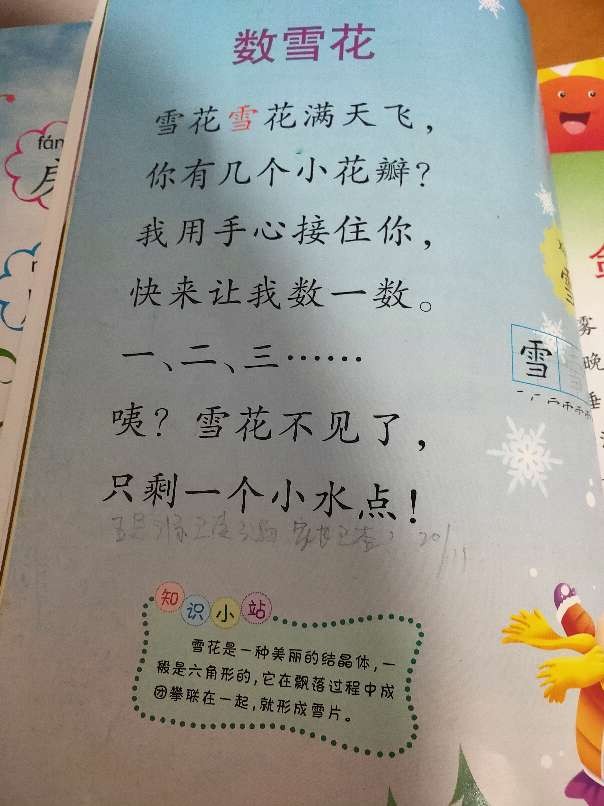 数雪花
雪花雪花满天飞，
你有几个小花瓣？
我用手心接住你，
快来让我数一数。
一、二、三……
咦？雪花不见了，
只剩一个小水点！
20/11
知识小站
雪花是一种美丽的结晶体，一
般是六角形的，它在飘落过程中成
团攀联在一起，就形成雪片。
fán
雪
雾
晚
垂